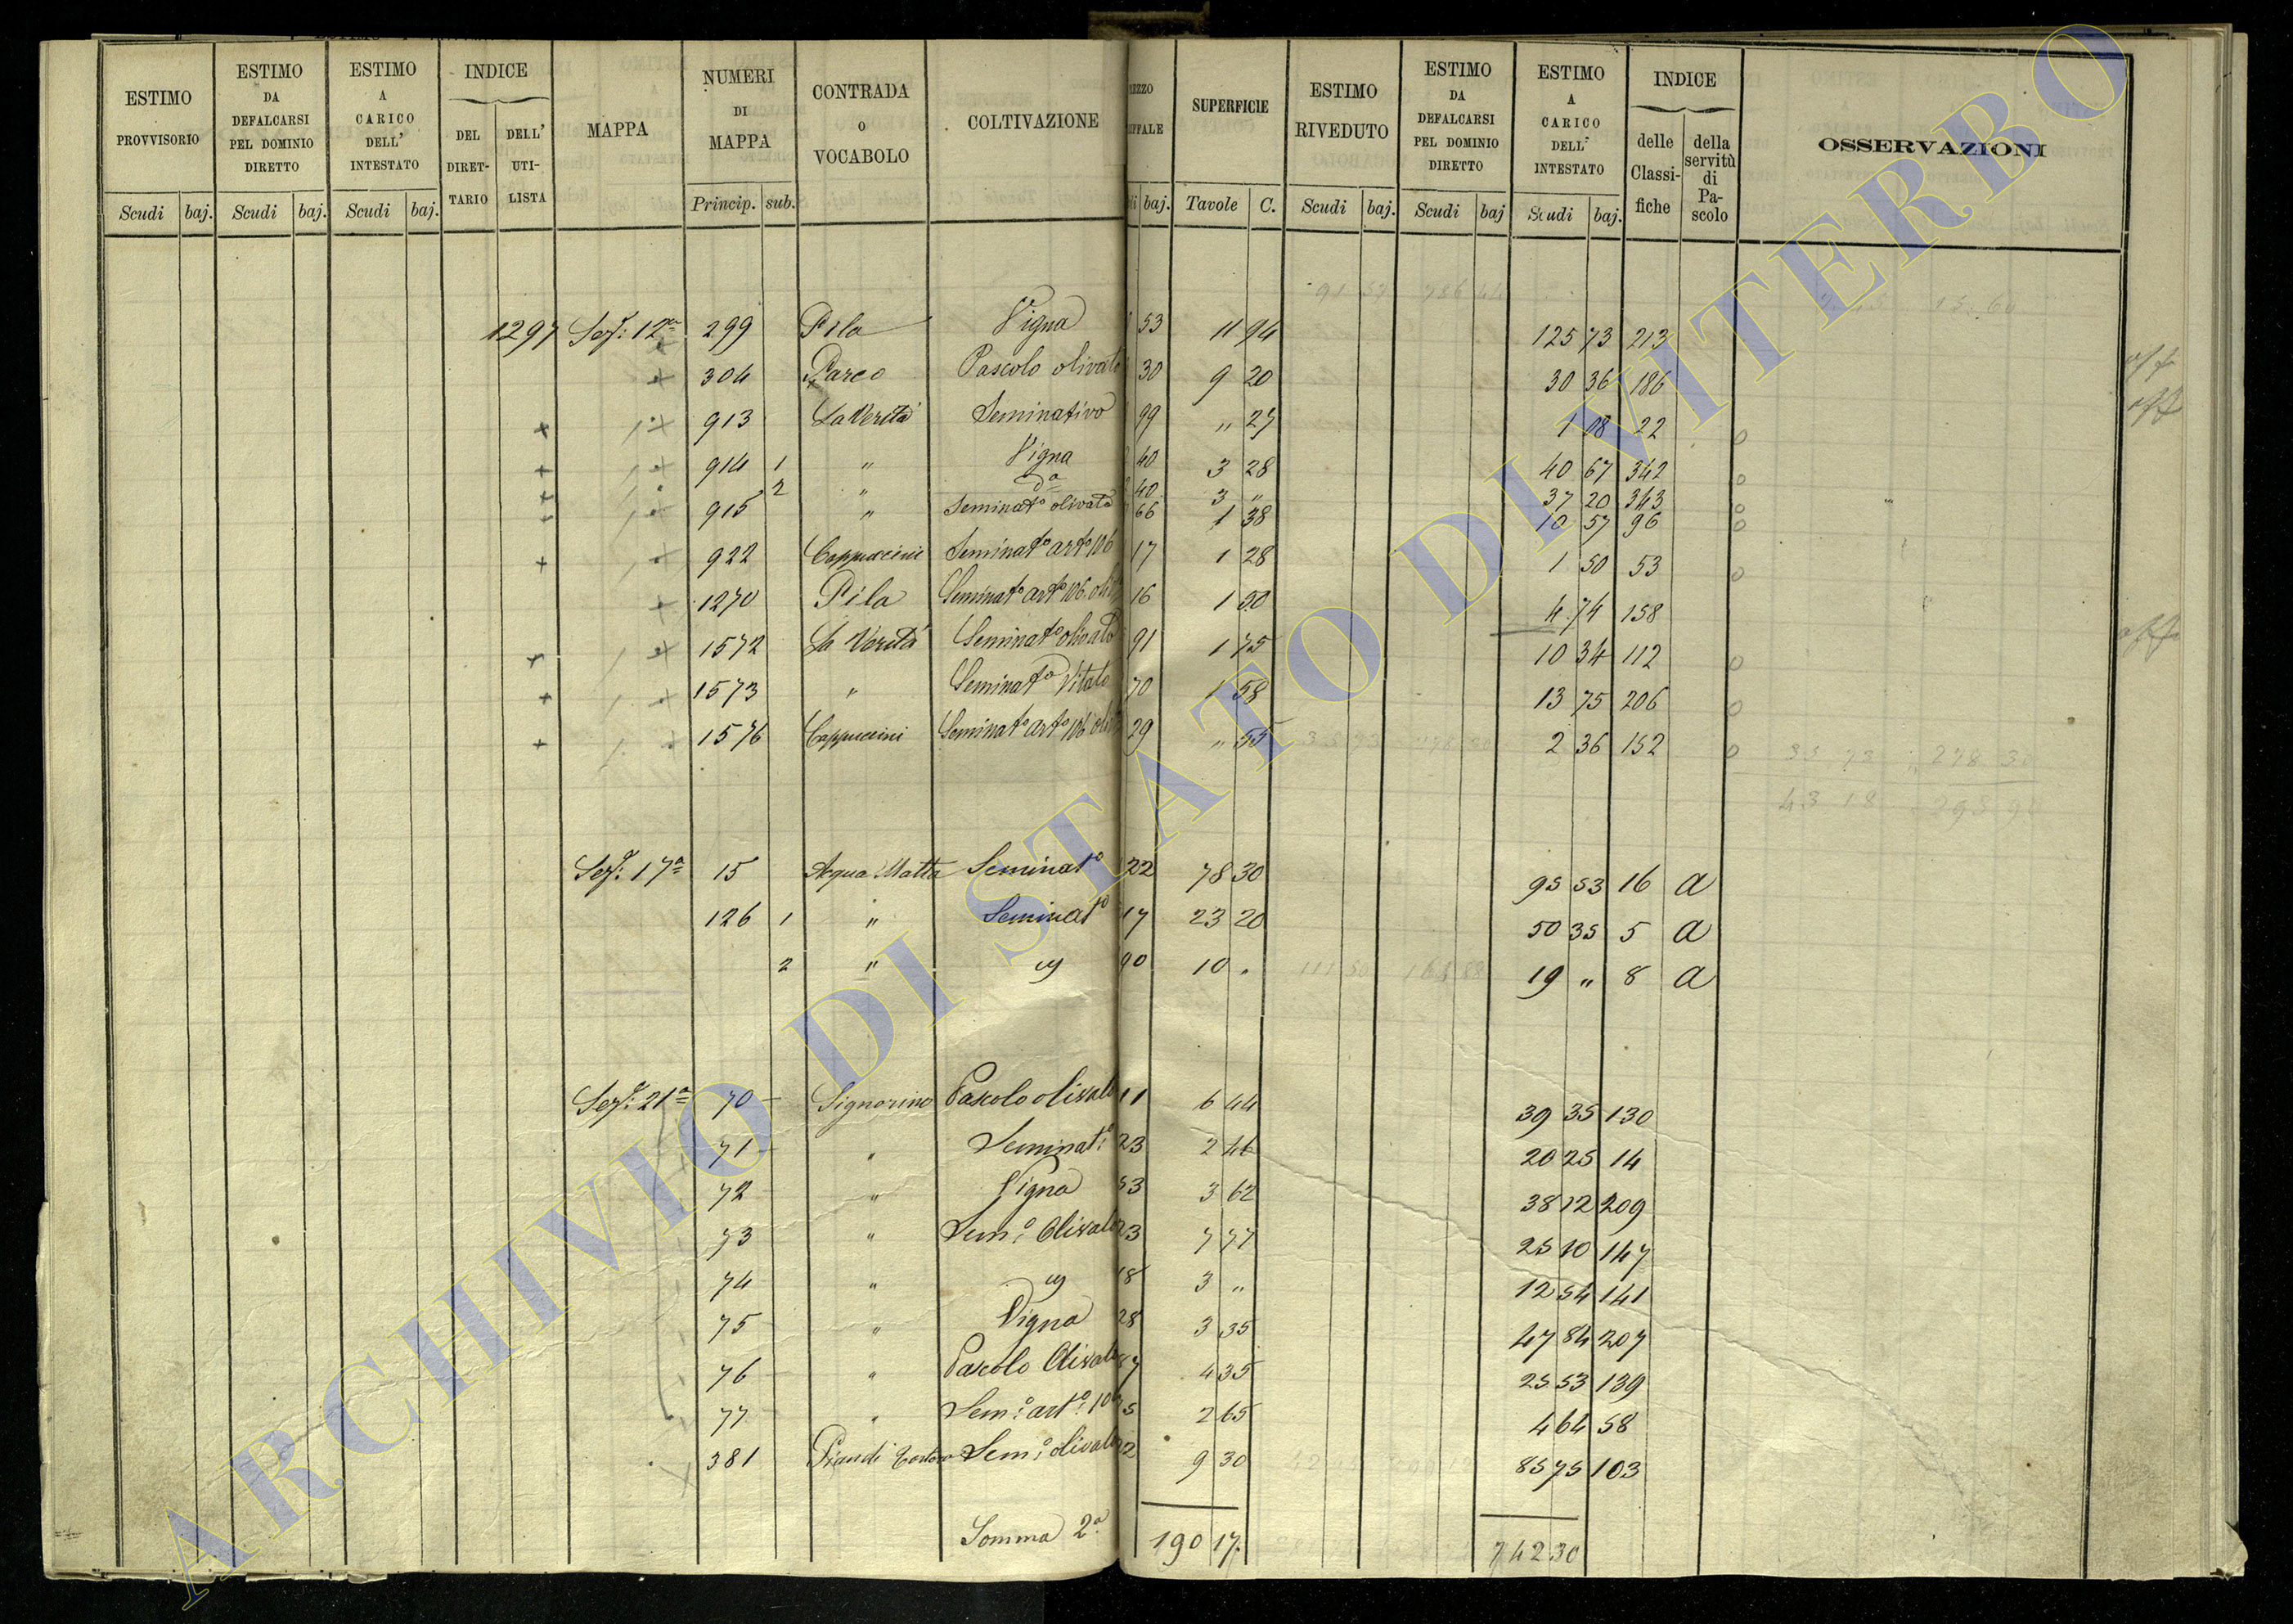 ESTIMO PROVVISORIO | ESTIMO DA DEFALCARSI PEL DOMINIO DIRETTO | ESTIMO A CARICO DELL' INTESTATO | INDICE | MAPPA | NUMERI DI MAPPA | CONTRADA O VOCABOLO | COLTIVAZIONE | SUPERFICIE | ESTIMO RIVEDUTO | ESTIMO DA DEFALCARSI PEL DOMINIO DIRETTO | ESTIMO A CARICO DELL' INTESTATO | INDICE | OSSERVAZIONI
DEL DIRET-TARIO | DELL' UTI-LISTA | delle Classi-fiche | della servitù di Pa-scolo
Scudi | baj. | Scudi | baj. | Scudi | baj. | Princip. | sub. | baj. | Tavole | C. | Scudi | baj. | Scudi | baj | Scudi | baj.
1297 Sez: 12ª 299 Pila Vigna 53 11 94 125 73 213
304 Parco Pascolo olivato 30 9 20 30 36 186
913 La Verità Seminativo 99 " 27 1 08 22
914 1 " Vigna 40 3 28 40 67 342
2 " dª 40 3 " 37 20 343
915 " Seminatº olivato 66 1 38 10 57 96
922 Cappuccini Seminatº artº 106 17 1 28 1 50 53
1270 Pila Seminatº artº 106. 16 1 50 4 74 158
1572 La Verità Seminatº olivato 91 1 75 10 34 112
1573 " Seminatº Vitato 70 1 58 13 75 206
1576 Cappuccini Seminatº artº 106 29 " 55 2 36 152
Sezª: 17ª 15 Acqua Matta Seminatº 22 78 30 95 53 16 a
126 1 " Seminatº 17 23 20 50 35 5 a
2 " 90 10 . 19 " 8 a
Sezª: 21ª 70 Signorino Pascolo olivato 11 6 44 39 35 130
71 " Seminat:º 23 2 46 20 25 14
72 " Vigna 53 3 62 38 12 209
73 " Sem:º Olivato 23 7 77 25 10 147
74 " 18 3 " 12 54 141
75 " Vigna 28 3 35 47 84 207
76 " Pascolo Olivato 87 4 35 25 53 139
77 " Sem:º artº: 2 65 4 64 58
381 Sem:º olivato 9 30 85 75 103
Somma 2ª 190 17. 742 30
ARCHIVIO DI STATO DI VITERBO